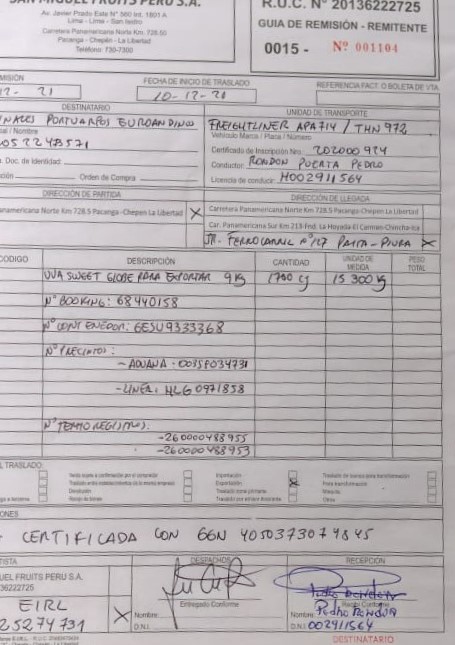 SAN MIGUEL FRUITS PERU S.A.
Av. Javier Prado Este N° 560 Int. 1801 A
Lima - Lima - San Isidro
Carretera Panamericana Norte Km. 728.50
Pacanga - Chepén - La Libertad
Teléfono: 730-7300
R.U.C. N° 20136222725
GUIA DE REMISIÓN - REMITENTE
0015 - N° 001104
MISIÓN
12-21
FECHA DE INICIO DE TRASLADO
10-12-21
REFERENCIA FACT. O BOLETA DE VTA.
DESTINATARIO
INALES PORTUARIOS EUROANDINO
al / Nombre
Doc. de Identidad:
Orden de Compra
UNIDAD DE TRANSPORTE
FREIGHTLINER APA714 / THN 972
Vehículo Marca / Placa / Número
Certificado de Inscripción Nro.: 202000924
Conductor: RONDON PUERTA PEDRO
Licencia de conducir: H002911564
DIRECCIÓN DE PARTIDA
anamericana Norte Km 728.5 Pacanga-Chepen La Libertad X
DIRECCIÓN DE LLEGADA
Carretera Panamericana Norte Km 728.5 Pacanga-Chepen La Libertad
Car. Panamericana Sur Km 213-Fnd. La Hoyada El Carmen-Chincha-Ica
JR. FERROCARRIL N°127 PAITA - PIURA X
CODIGO DESCRIPCIÓN CANTIDAD UNIDAD DE MEDIDA PESO TOTAL
UVA SWEET GLOBE PARA EXPORTAR 9 Kg 1700 CJ 15 300 Kg
N° BOOKING: 68440158
N° CONTENEDOR: GESU9333368
N° PRECINTOS:
- ADUANA: 00358034731
- LINEA: HLG0971858
N° TERMOREGISTROS:
-260000488955
-260000488953
L TRASLADO:
Venta sujeta a confirmación por el comprador
Traslado entre establecimientos de la misma empresa
Devolución
Recojo de bienes
Importación
Exportación X
Traslado zona primaria
Traslado por emisor itinerante
Traslado de bienes para transformación
Para transformación
Otros
IONES
CERTIFICADA CON GGN 4050373074845
TISTA
UEL FRUITS PERU S.A.
36222725
EIRL X
25274731
DESPACHOS
Entregado Conforme
Nombre:
D.N.I.
RECEPCIÓN
Recibí Conforme
Nombre: Pedro Rondon
D.N.I. 002911564
DESTINATARIO